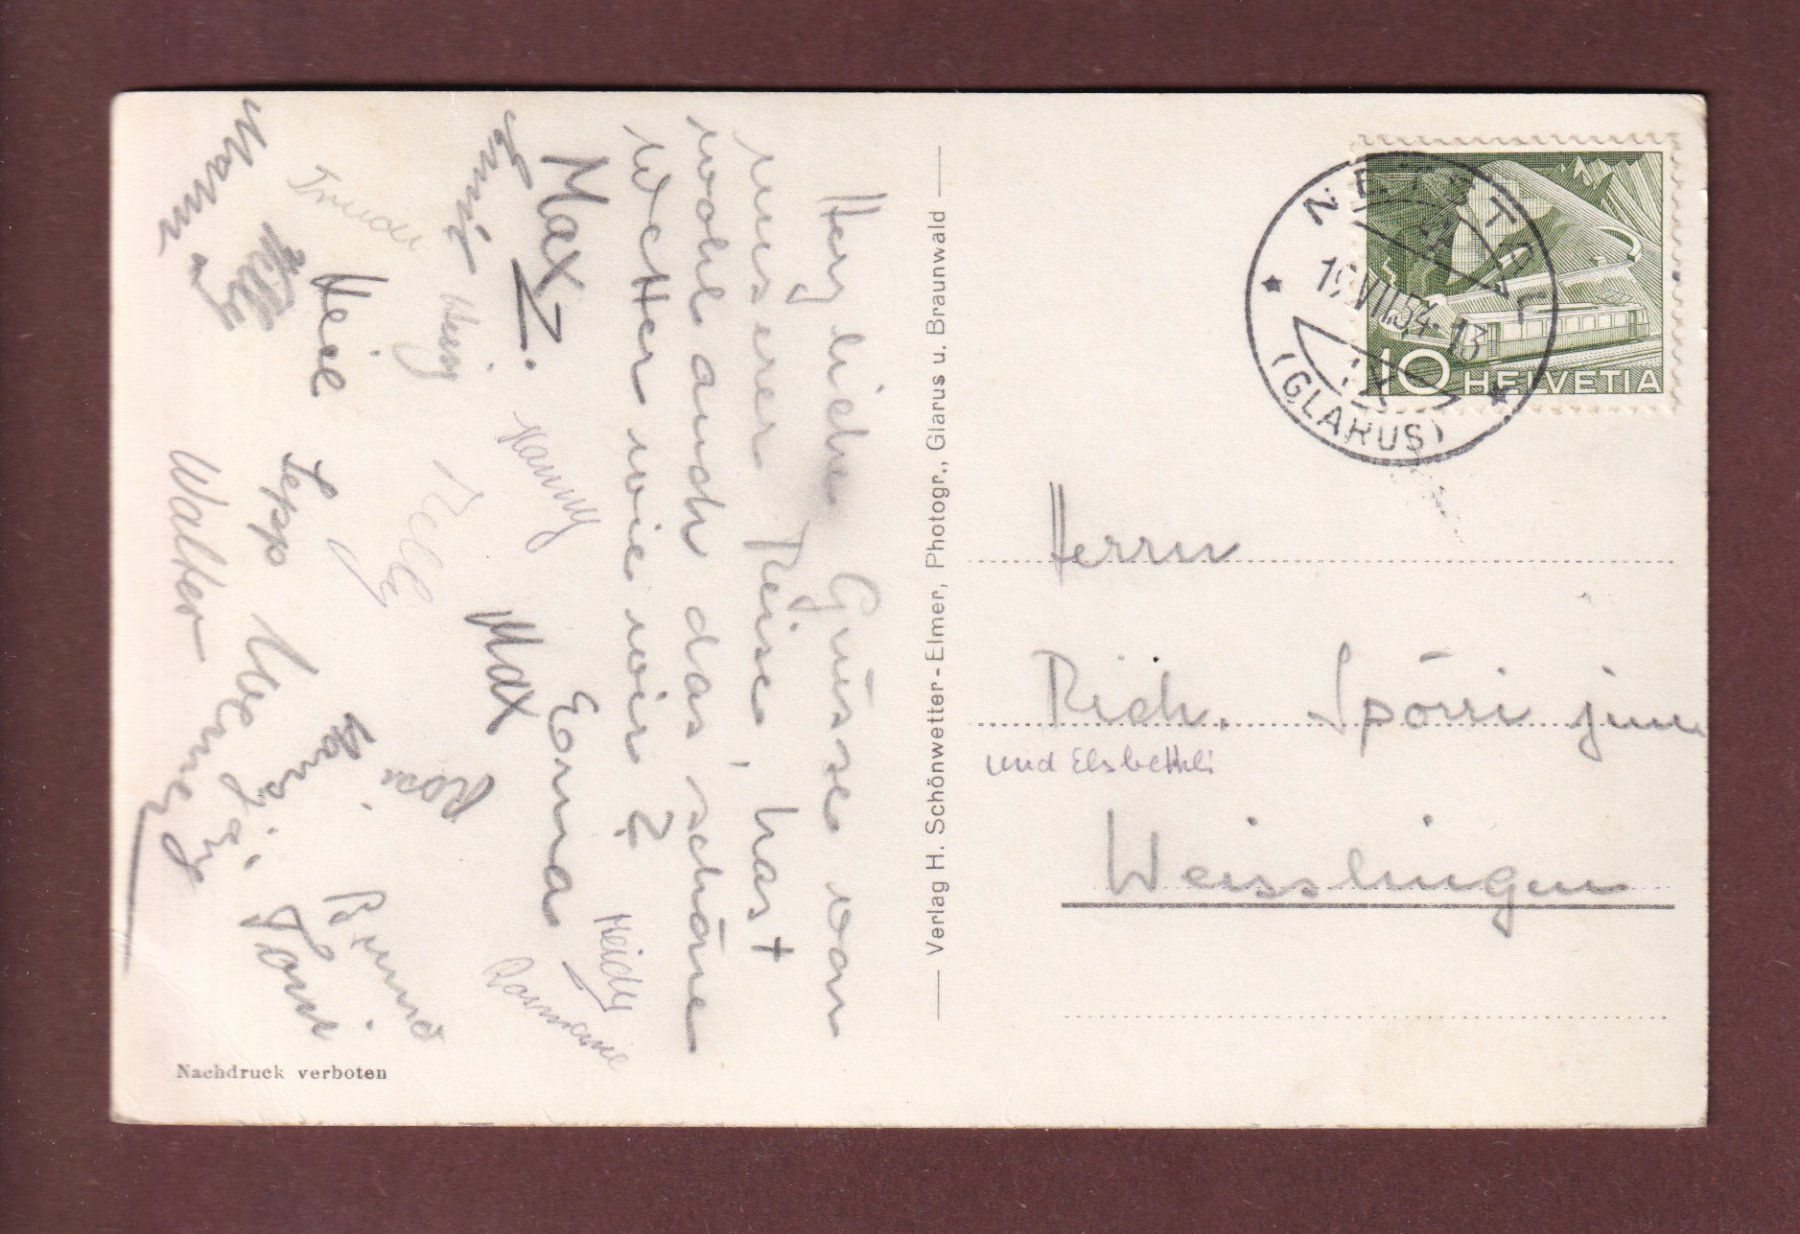 Herzliche Grüsse von
unserer Reise, hast
wohl auch das schöne
Wetter wie wir?
Max Z.
Erna
Max
Hanny
Heidy
Rosmarie
Nelly
Rosa
Trudi
Heiri
Sepp
Hansj.
Bruno
Willy
Toni
Walter
Nachdruck verboten
Verlag H. Schönwetter-Elmer, Photogr., Glarus u. Braunwald
NETSTAL
19.VII.54-13
(GLARUS)
10 HELVETIA
Herrn
Rich. Spörri jun
und Elsbethli
Weisslingen